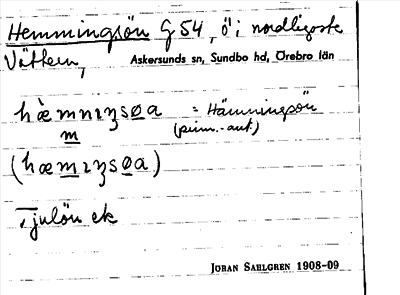 Hemmingsön G 54, ö i nordligaste
Vättern, Askersunds sn, Sundbo hd, Örebro län
hæ̀mnɪŋsøa = Hämningsön
m (pinn.-ant.)
(hæmɪŋsøa)
Tjulön ek
JOHAN SAHLGREN 1908-09